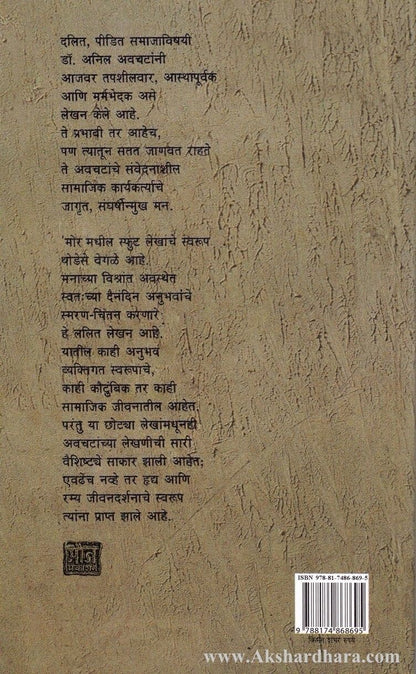 दलित, पीडित समाजाविषयी
डॉ. अनिल अवचटांनी
आजवर तपशीलवार, आस्थापूर्वक
आणि मर्मभेदक असे
लेखन केले आहे.
ते प्रभावी तर आहेच,
पण त्यातून सतत जाणवत राहते
ते अवचटांचे संवेदनाशील
सामाजिक कार्यकर्त्याचे
जागृत, संघर्षोन्मुख मन.
'मोर मधील स्फुट लेखांचे स्वरूप
थोडेसे वेगळे आहे.
मनाच्या विश्रांत अवस्थेत
स्वतःच्या दैनंदिन अनुभवांचे
स्मरण-चिंतन करणारे
हे ललित लेखन आहे.
यातील काही अनुभव
व्यक्तिगत स्वरूपाचे,
काही कौटुंबिक तर काही
सामाजिक जीवनातील आहेत.
परंतु या छोट्या लेखांमधूनही
अवचटांच्या लेखणीची सारी
वैशिष्ट्ये साकार झाली आहेत;
एवढेच नव्हे तर हृद्य आणि
रम्य जीवनदर्शनाचे स्वरूप
त्यांना प्राप्त झाले आहे.
मौज
प्रकाशन
ISBN 978-81-7486-869-5
9 788174 868695
www.Akshardhara.com